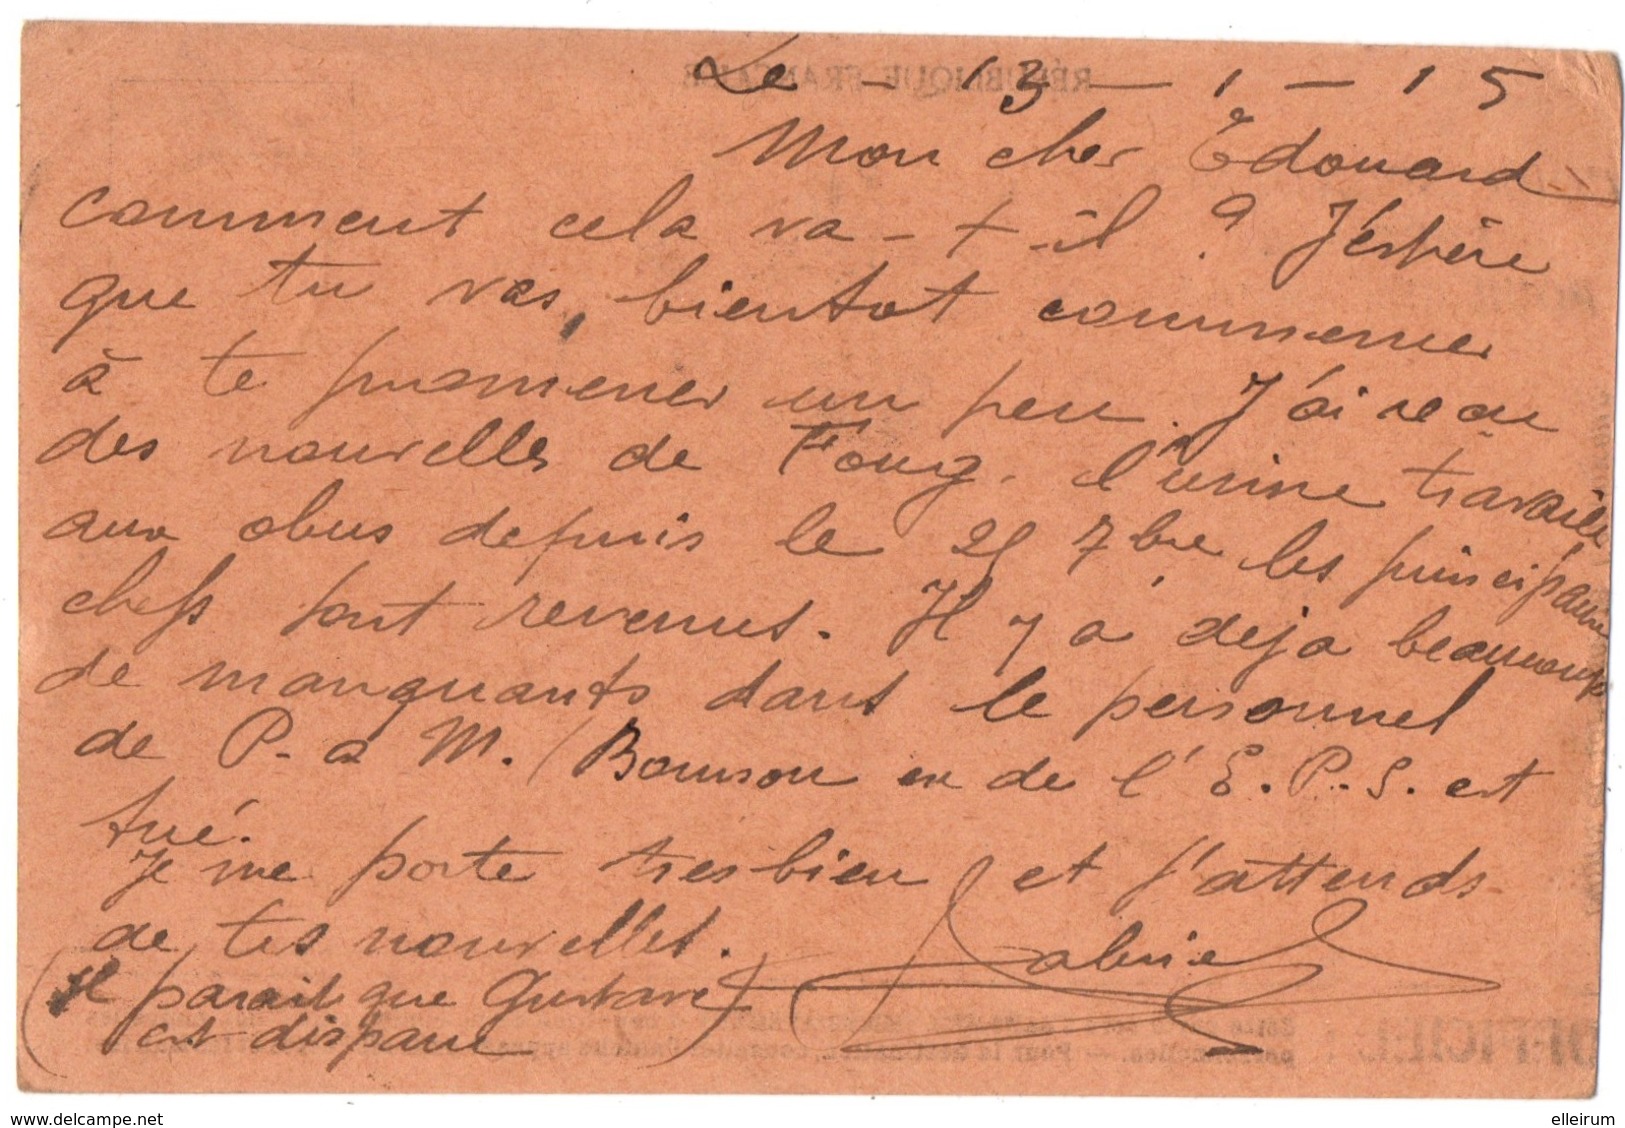 Le - 13 - 1 - 15
Mon cher Edouard
comment cela va-t-il ? J'espère
que tu vas, bientot commencer
à te promener un peu. J'ai reçu
des nouvelles de Foug. l'usine travaille
aux obus depuis le 25 7bre les principaux
chefs sont revenus. Il y a deja beaucoup
de manquants dans le personnel
de P. a M. Bouison ex de l'E.P.S. est
tué.
Je me porte tres bien et j'attends
de tes nouvelles. Gabriel
(Il parait que Gustave
est disparu)
RÉPUBLIQUE FRANÇAISE
OFFICIEL
delcampe.net
elleirum